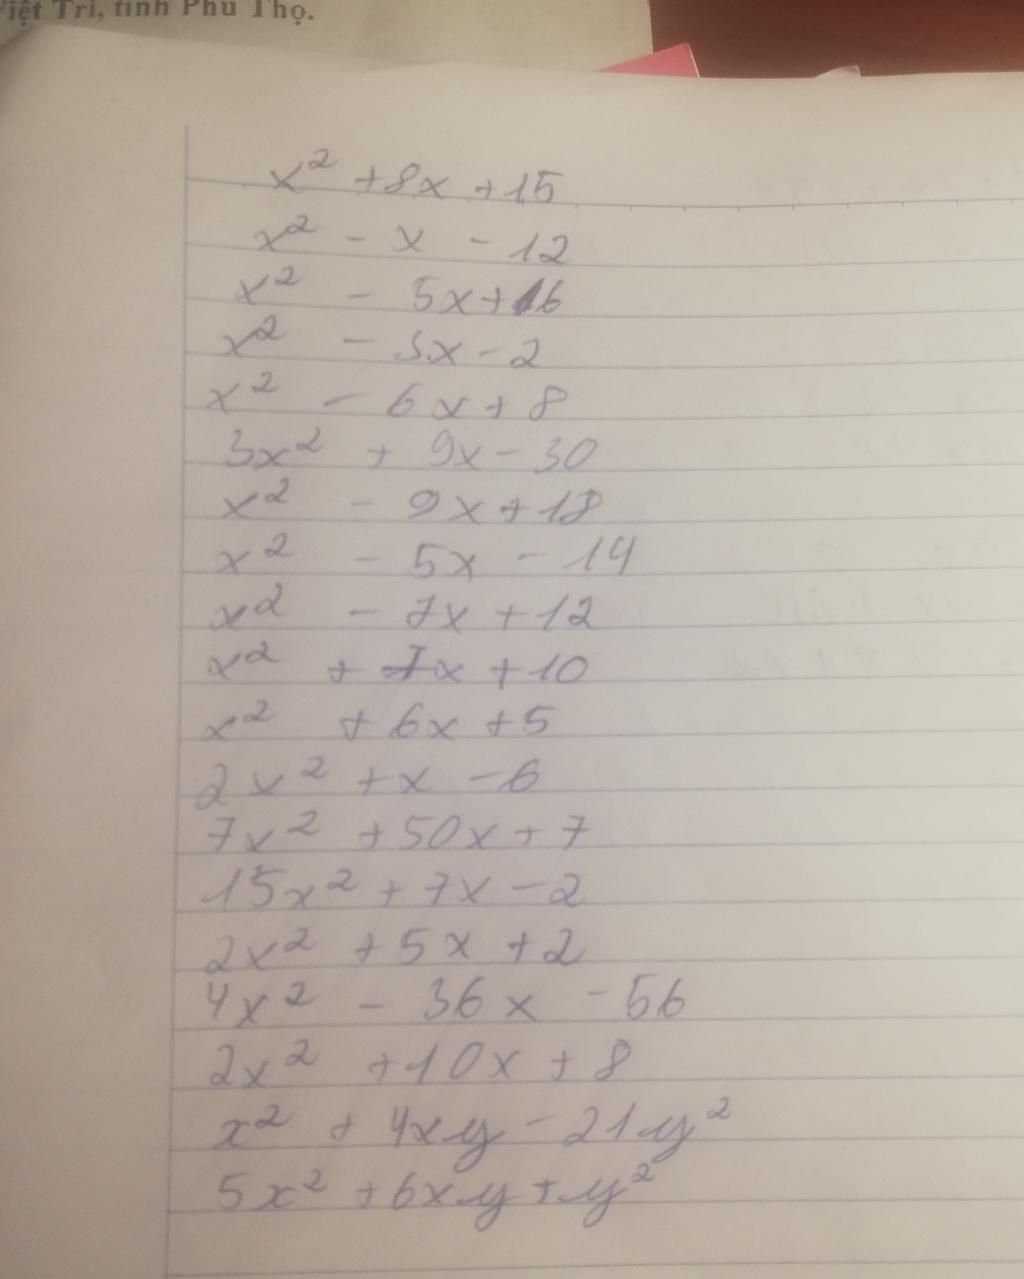 Việt Trì, tỉnh Phú Thọ.
x² + 8x + 15
x² - x - 12
x² - 5x + 16
x² - 3x - 2
x² - 6x + 8
3x² + 9x - 30
x² - 9x + 18
x² - 5x - 14
x² - 7x + 12
x² + 7x + 10
x² + 6x + 5
2x² + x - 6
7x² + 50x + 7
15x² + 7x - 2
2x² + 5x + 2
4x² - 36x - 56
2x² + 10x + 8
x² + 4xy - 21y²
5x² + 6xy + y²